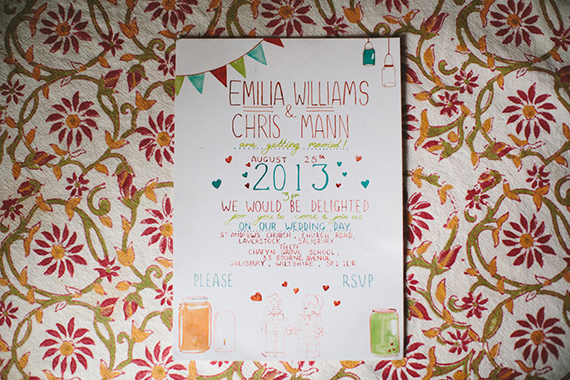 EMILIA WILLIAMS
&
CHRIS MANN
are getting married!
AUGUST 25th
2013
3pm
WE WOULD BE DELIGHTED
for you to come & join us
ON OUR WEDDING DAY
ST ANDREWS CHURCH, CHURCH ROAD,
LAVERSTOCK, SALISBURY
THEN
CHAFYN GROVE SCHOOL,
33 BOURNE AVENUE
SALISBURY, WILTSHIRE, SP1 1LR
PLEASE RSVP